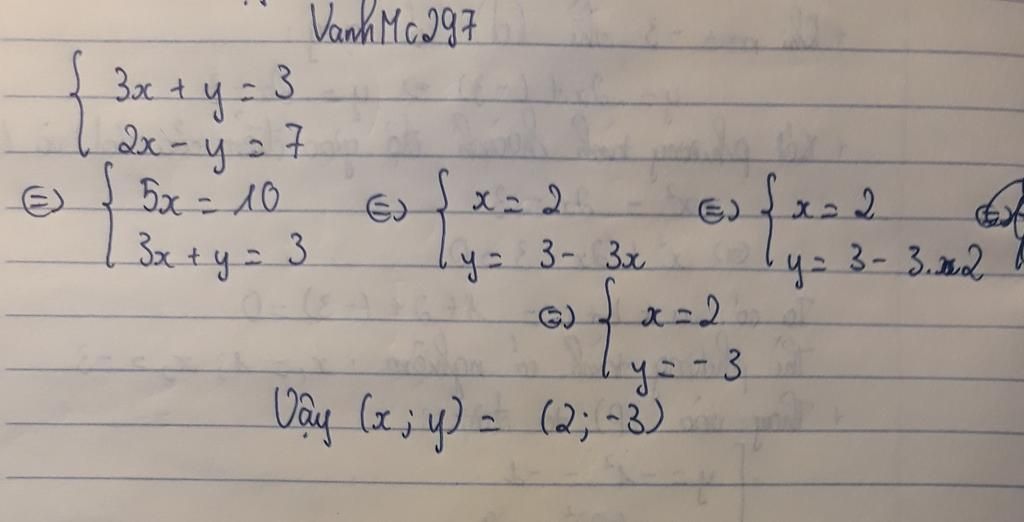 VanhMc297
{ 3x + y = 3
2x - y = 7
⇔ { 5x = 10 ⇔ { x = 2 ⇔ { x = 2 ⇔
3x + y = 3 y = 3 - 3x y = 3 - 3.2
⇔ { x = 2
y = -3
Vậy (x; y) = (2; -3)